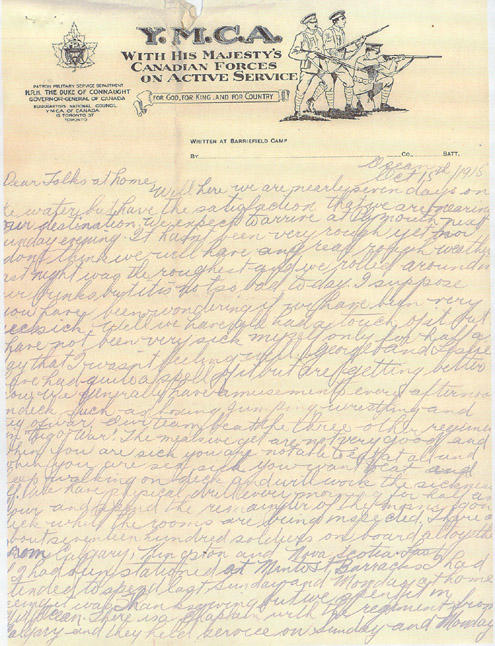 Y.M.C.A.
WITH HIS MAJESTY'S
CANADIAN FORCES
ON ACTIVE SERVICE
FOR GOD, FOR KING, AND FOR COUNTRY
PATRON MILITARY SERVICE DEPARTMENT
H.R.H. THE DUKE OF CONNAUGHT
GOVERNOR-GENERAL OF CANADA
HEADQUARTERS NATIONAL COUNCIL
Y.M.C.A. OF CANADA
15 TORONTO ST
TORONTO
WRITTEN AT BARRIEFIELD CAMP
BY CO., BATT.
Ocean
Oct 15th/1915
Dear Folks at home,
Well here we are nearly seven days on
the water but have the satisfaction that we are nearing
our destination. We expect to arrive at Plymouth next
Sunday evening. It hasn't been very rough yet nor
don't think we will have any real rough weather
last night was the roughest and we rolled around in
our bunks, but it is not so bad to-day. I suppose
you have been wondering if we have been very
seasick. Well we have all had a touch of it but
have not been very sick myself only for half a
day that I wasn't feeling well. George and
have had quite a spell of it but are getting better
now. We generally have amusements every afternoon
on deck such as boxing, jumping, wrestling and
tug of war. Our team beat the three other regiments
in Tug of War. The meals we get are not very good and
when you are sick you are not able to eat at all and
when you are sea sick you want to eat and
keep walking on deck and will work the sickness
off. We have physical drill every morning for half an
hour and spend the remainder of the morning on
deck while the rooms are being inspected. There are
about seventeen hundred soldiers on board altogether
from Calgary, Kingston and Nova Scotia
If I had been stationed at Minto Barracks I had
intended to spend last Sunday and Monday at home
seeing it was Thanksgiving but we spent it in
mid Ocean. There is a Chaplain with the regiment from
Calgary and they held service on Sunday and Monday